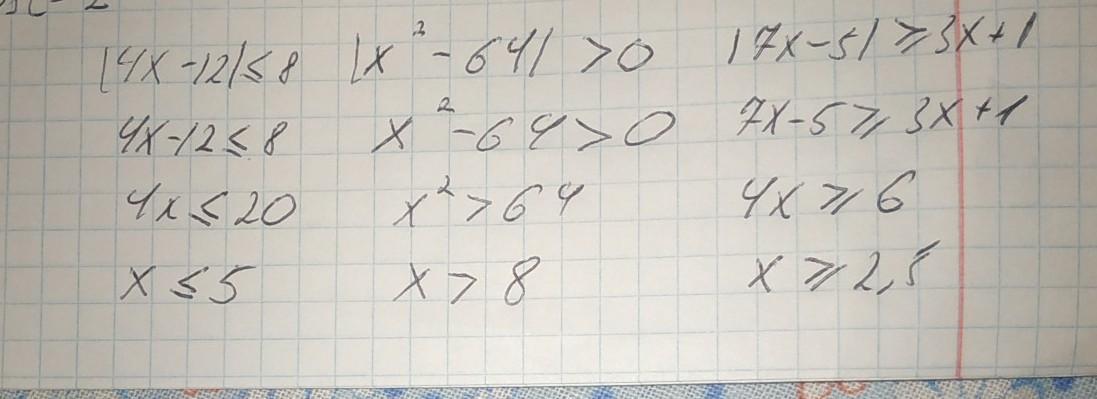 |4x-12|≤8 |x²-64|>0 |7x-5|≥3x+1
4x-12≤8 x²-64>0 7x-5≥3x+1
4x≤20 x²>64 4x≥6
x≤5 x>8 x≥2,5